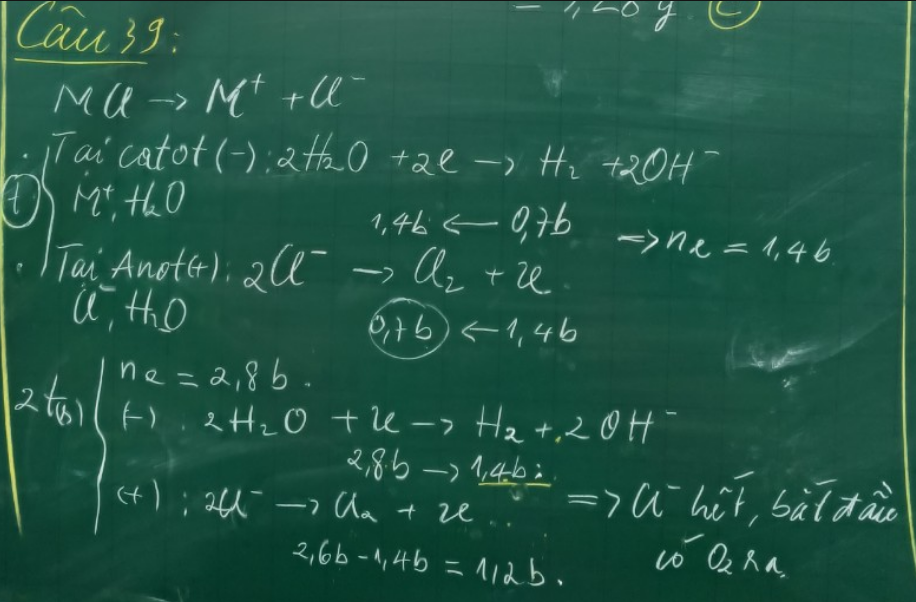 = 1,28 y. C
Câu 39:
MCl → M⁺ + Cl⁻
t Tại catot (-): 2H₂O + 2e → H₂ + 2OH⁻
M⁺, H₂O
1,4b ← 0,7b => ne = 1,4b
Tại Anot(+): 2Cl⁻ → Cl₂ + 2e.
Cl⁻, H₂O
0,7b ← 1,4b
2t(s) ne = 2,8b.
(-) . 2H₂O + 2e → H₂ + 2OH⁻
2,8b → 1,4b:
(+) : 2Cl⁻ → Cl₂ + 2e => Cl⁻ hết, bắt đầu
2,6b - 1,4b = 1,2b. có O₂ ra.